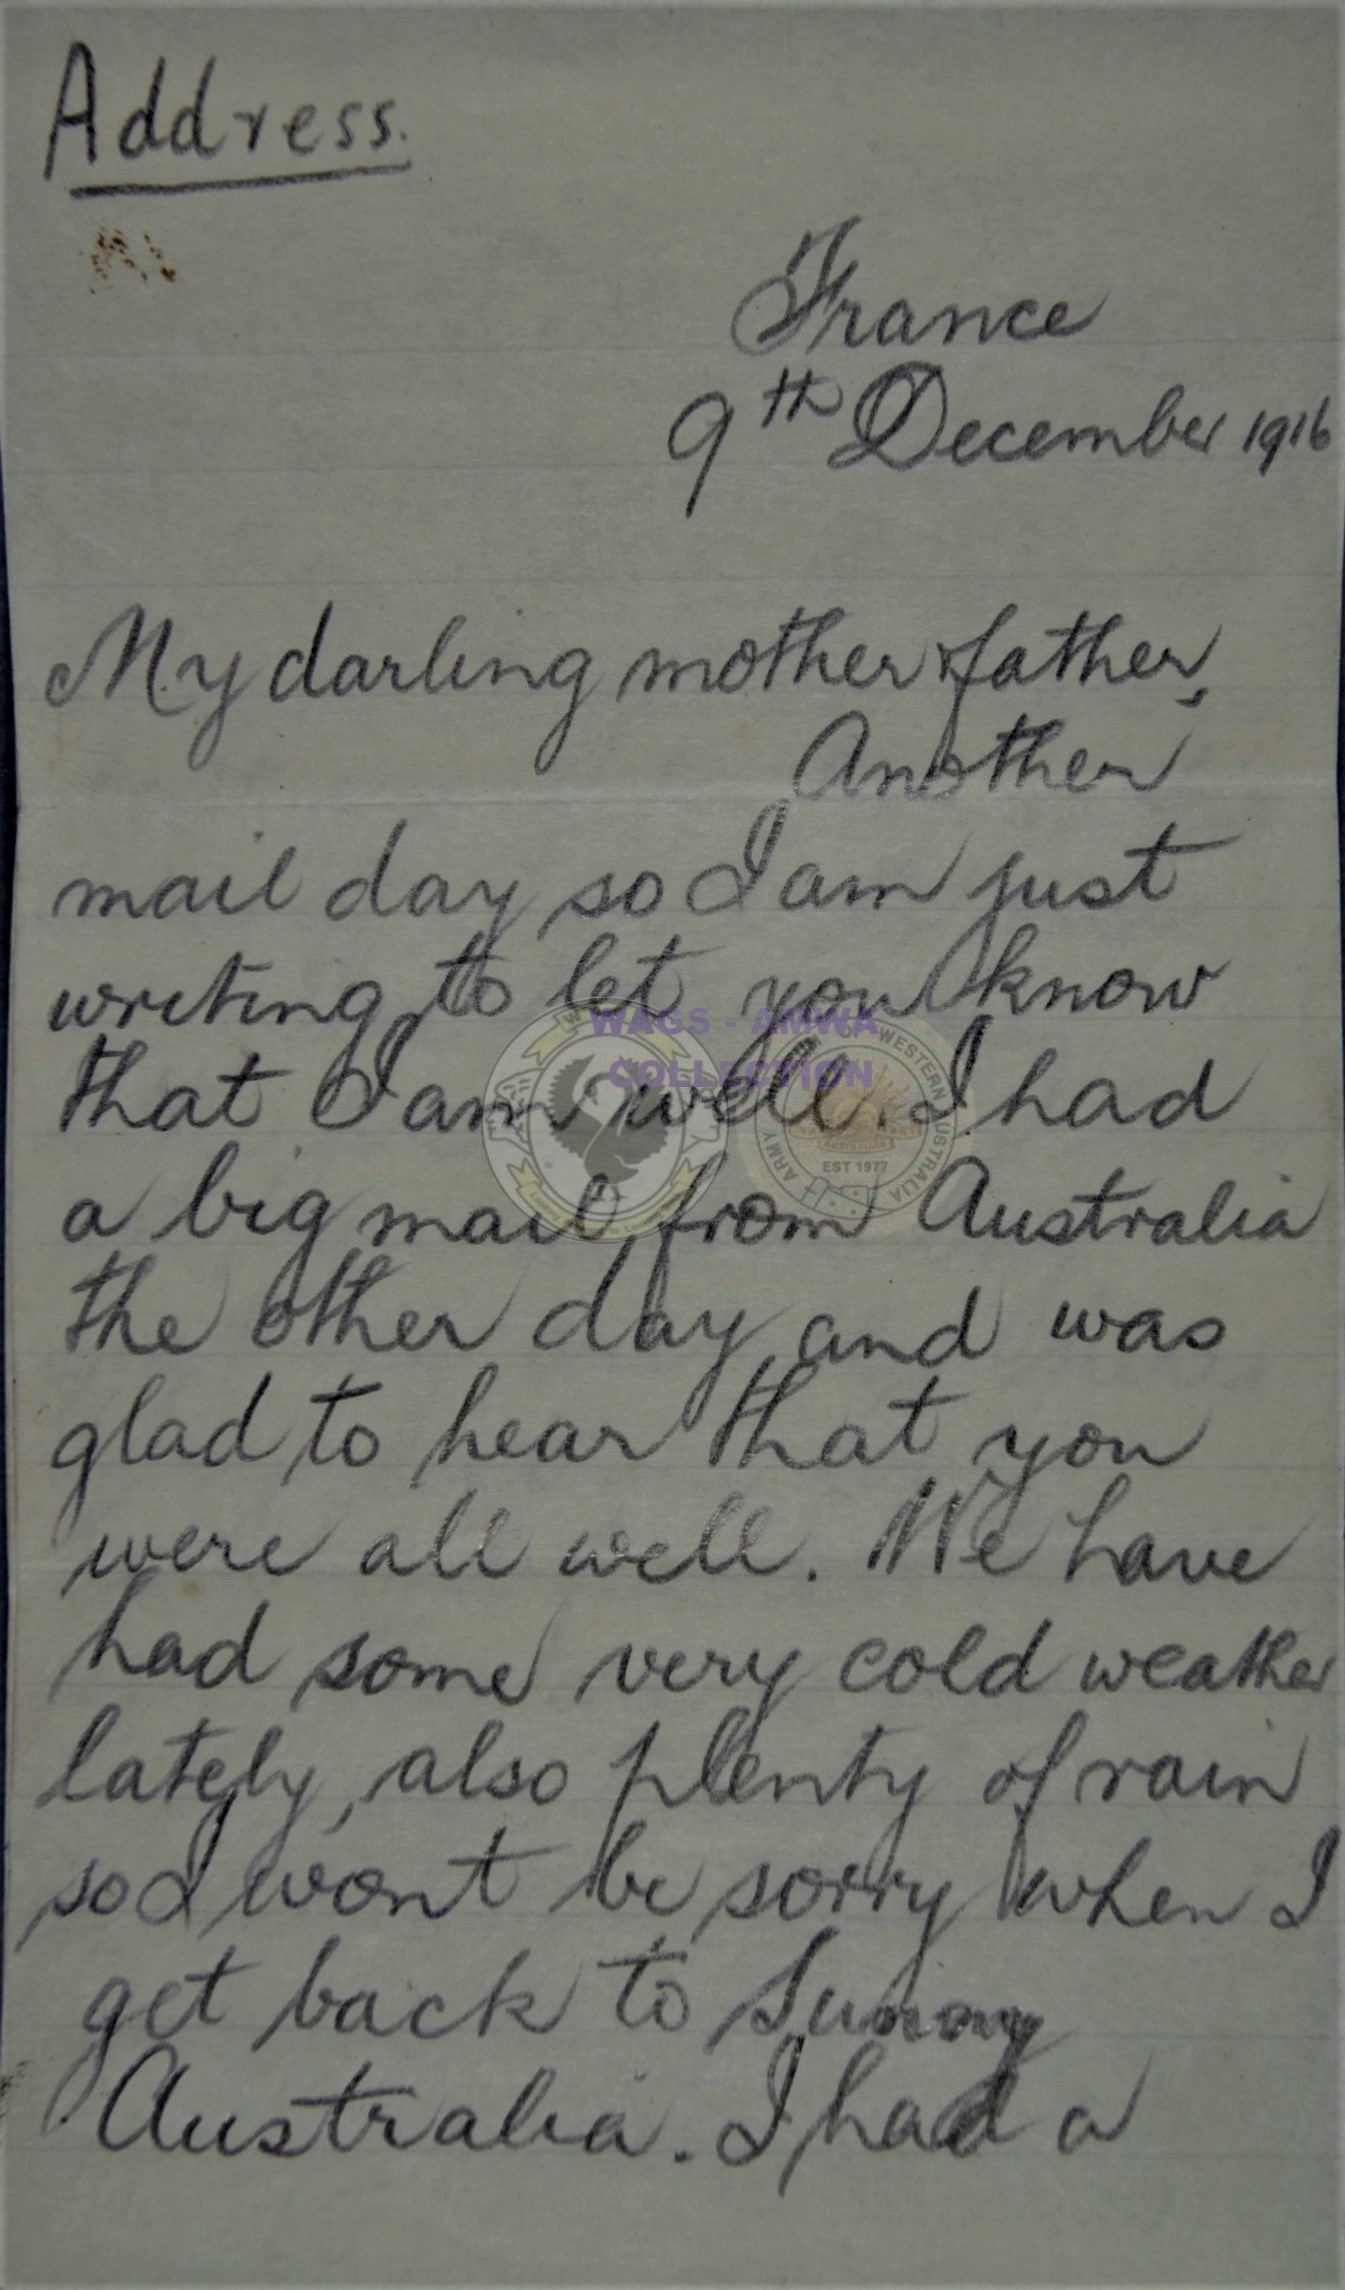 Address.
France
9th December 1916
My darling mother & father,
Another
mail day so I am just
writing to let you know
that I am well. I had
a big mail from Australia
the other day and was
glad to hear that you
were all well. We have
had some very cold weather
lately, also plenty of rain
so I wont be sorry when I
get back to Sunny
Australia. I had a
WAGS - AMWA
COLLECTION
ARMY
OF WESTERN AUSTRALIA
EST 1977